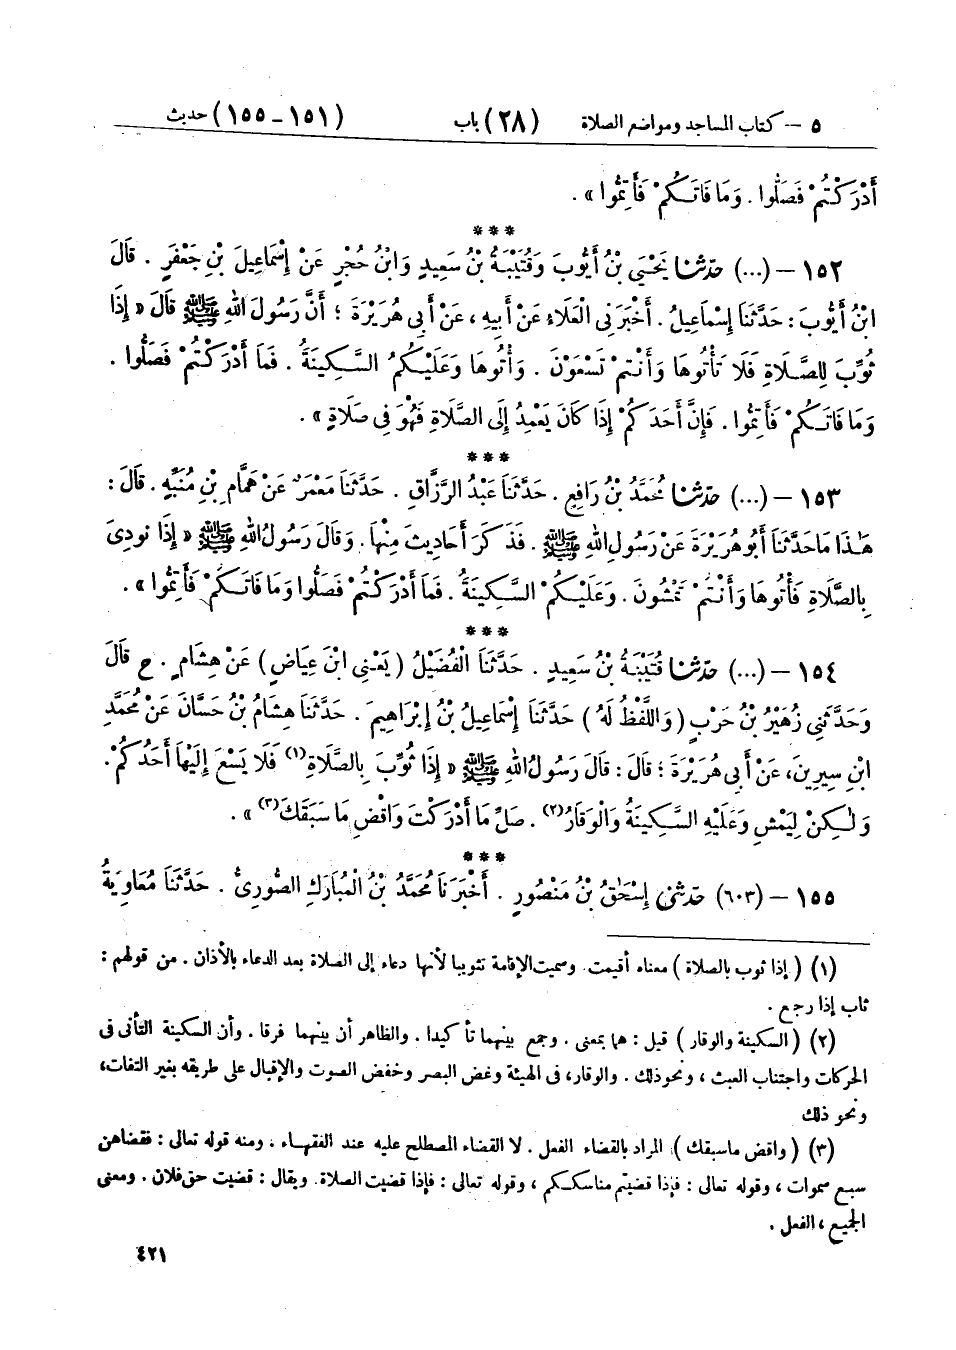 ٥ – كتاب المساجد ومواضع الصلاة (٢٨) باب (١٥١ – ١٥٥) حديث
أَدْرَكْتُمْ فَصَلُّوا . وَمَا فَاتَكُمْ فَأَتِمُّوا » .
***
١٥٢ – (...) حَدَّثَنَا يَحْيَى بْنُ أَيُّوبَ وَقُتَيْبَةُ بْنُ سَعِيدٍ وَابْنُ حُجْرٍ عَنْ إِسْمَاعِيلَ بْنِ جَعْفَرٍ . قَالَ
ابْنُ أَيُّوبَ : حَدَّثَنَا إِسْمَاعِيلُ . أَخْبَرَنِي الْعَلَاءُ عَنْ أَبِيهِ ، عَنْ أَبِي هُرَيْرَةَ ؛ أَنَّ رَسُولَ اللهِ ﷺ قَالَ « إِذَا
ثُوِّبَ لِلصَّلَاةِ فَلَا تَأْتُوهَا وَأَنْتُمْ تَسْعَوْنَ . وَأْتُوهَا وَعَلَيْكُمُ السَّكِينَةُ . فَمَا أَدْرَكْتُمْ فَصَلُّوا .
وَمَا فَاتَكُمْ فَأَتِمُّوا . فَإِنَّ أَحَدَكُمْ إِذَا كَانَ يَعْمِدُ إِلَى الصَّلَاةِ فَهُوَ فِي صَلَاةٍ » .
***
١٥٣ – (...) حَدَّثَنَا مُحَمَّدُ بْنُ رَافِعٍ . حَدَّثَنَا عَبْدُ الرَّزَّاقِ . حَدَّثَنَا مَعْمَرٌ عَنْ هَمَّامِ بْنِ مُنَبِّهٍ . قَالَ :
هَٰذَا مَا حَدَّثَنَا أَبُو هُرَيْرَةَ عَنْ رَسُولِ اللهِ ﷺ . فَذَكَرَ أَحَادِيثَ مِنْهَا . وَقَالَ رَسُولُ اللهِ ﷺ « إِذَا نُودِيَ
بِالصَّلَاةِ فَأْتُوهَا وَأَنْتُمْ تَمْشُونَ . وَعَلَيْكُمُ السَّكِينَةُ . فَمَا أَدْرَكْتُمْ فَصَلُّوا وَمَا فَاتَكُمْ فَأَتِمُّوا » .
***
١٥٤ – (...) حَدَّثَنَا قُتَيْبَةُ بْنُ سَعِيدٍ . حَدَّثَنَا الْفُضَيْلُ ( يَعْنِي ابْنَ عِيَاضٍ ) عَنْ هِشَامٍ . ح قَالَ
وَحَدَّثَنِي زُهَيْرُ بْنُ حَرْبٍ ( وَاللَّفْظُ لَهُ ) حَدَّثَنَا إِسْمَاعِيلُ بْنُ إِبْرَاهِيمَ . حَدَّثَنَا هِشَامُ بْنُ حَسَّانَ عَنْ مُحَمَّدِ
ابْنِ سِيرِينَ، عَنْ أَبِي هُرَيْرَةَ ؛ قَالَ : قَالَ رَسُولُ اللهِ ﷺ « إِذَا ثُوِّبَ بِالصَّلَاةِ(١) فَلَا يَسْعَ إِلَيْهَا أَحَدُكُمْ .
وَلَٰكِنْ لِيَمْشِ وَعَلَيْهِ السَّكِينَةُ وَالْوَقَارُ(٢) . صَلِّ مَا أَدْرَكْتَ وَاقْضِ مَا سَبَقَكَ(٣) » .
***
١٥٥ – (٦٠٣) حَدَّثَنِي إِسْحَٰقُ بْنُ مَنْصُورٍ . أَخْبَرَنَا مُحَمَّدُ بْنُ الْمُبَارَكِ الصُّورِيُّ . حَدَّثَنَا مُعَاوِيَةُ
(١) ( إذا ثوب بالصلاة ) معناه أقيمت . وسميت الإقامة تثويبا لأنها دعاء إلى الصلاة بعد الدعاء بالأذان . من قولهم :
ثاب إذا رجع .
(٢) ( السكينة والوقار ) قيل : هما بمعنى . وجمع بينهما تأكيدا . والظاهر أن بينهما فرقا . وأن السكينة التأنى فى
الحركات واجتناب العبث ، ونحو ذلك . والوقار، فى الهيئة وغض البصر وخفض الصوت والإقبال على طريقه بغير التفات،
ونحو ذلك
(٣) ( واقض ما سبقك ) المراد بالقضاء الفعل . لا القضاء المصطلح عليه عند الفقهاء . ومنه قوله تعالى : فقضاهن
سبع سموات ، وقوله تعالى : فإذا قضيتم مناسككم ، وقوله تعالى : فإذا قضيت الصلاة . ويقال : قضيت حق فلان . ومعنى
الجميع ، الفعل .
٤٢١